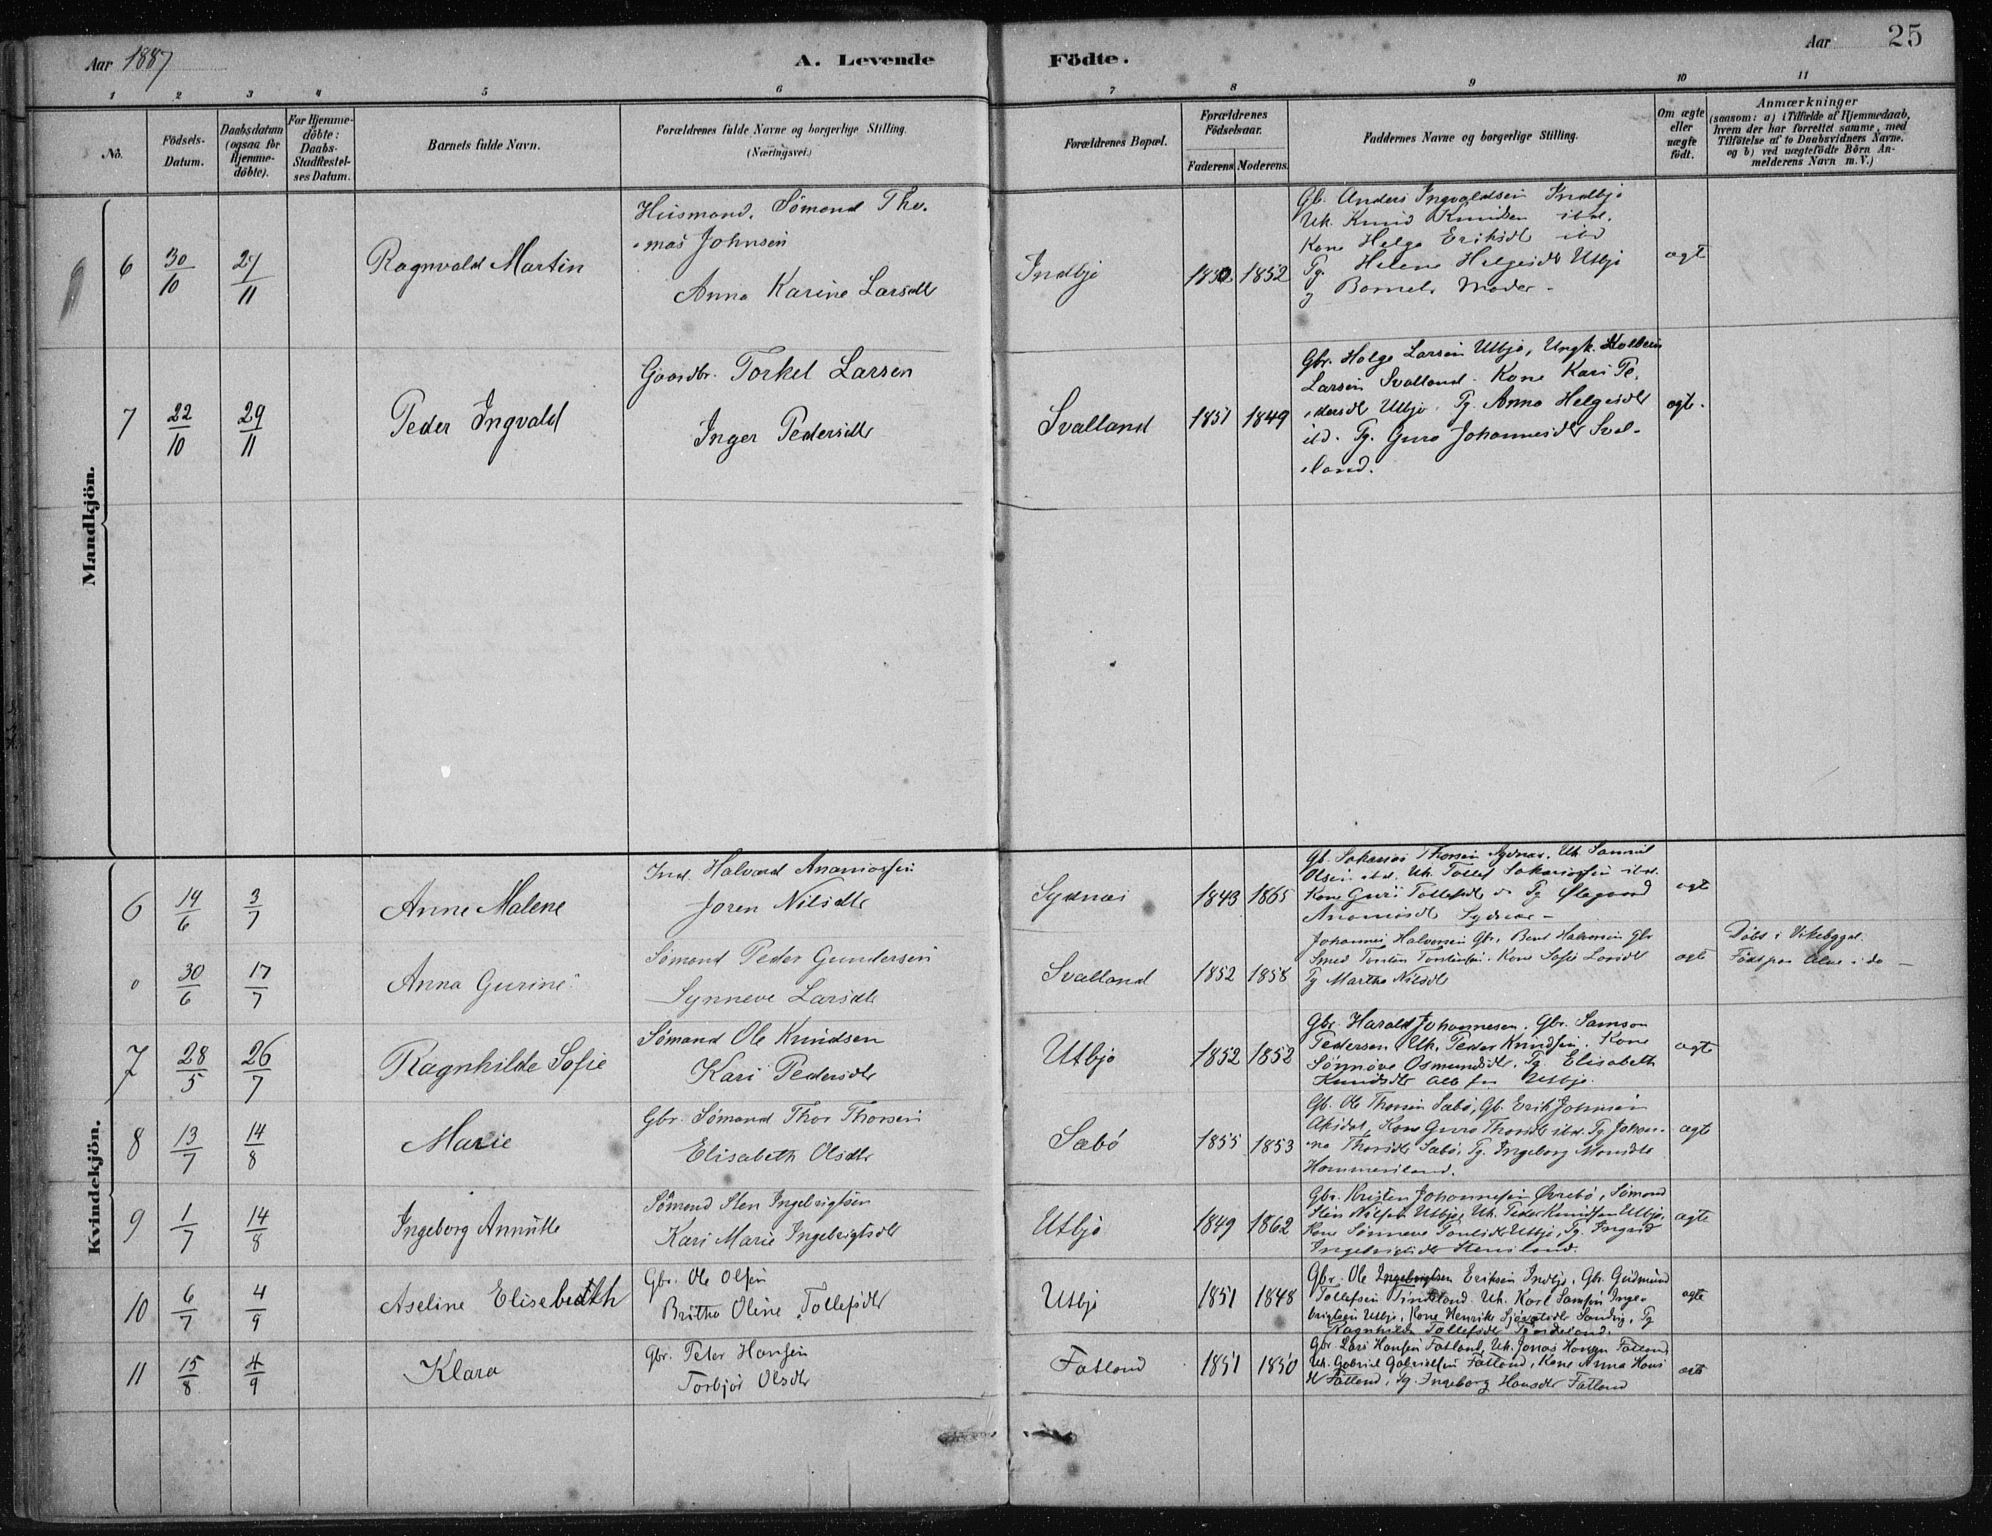 Aar 1887
A. Levende
Födte.
Aar
25
1 2 3 4 5 6 7 8 9 10 11
No.
Födsels-
Datum.
Daabsdatum
(ogsaa for
Hjemme-
döbte).
For Hjemme-
döbte:
Daabs-
Stadfestel-
ses Datum.
Barnets fulde Navn.
Forældrenes fulde Navne og borgerlige Stilling.
(Næringsvei.)
Forældrenes Bopæl.
Forældrenes
Födselsaar.
Faderens. Moderens.
Faddernes Navne og borgerlige Stilling.
Om ægte
eller
uægte
födt.
Anmærkninger
(saasom: a) i Tilfælde af Hjemmedaab,
hvem der har forrettet samme, med
Tilföielse af to Daabsvidners Navne.
og b) ved uægtefödte Börn An-
melderens Navn m. V.)
Mandkjön.
6 30/10 27/11 Ragnvald Martin
Husmand. Sömand Tho-
mas Johnsen
Anna Karine Larsdtr
Indbjo 1830 1852
Gb. Anders Ingvaldsen Indbjo
Uk. Knud Knudsen ibd.
Kone Helga Eriksdtr ibd
Pg. Helene Helgesdtr Utbjo
og Barnets Moder -
ægt
7 22/10 29/11 Peder Ingvald
Gaardbr. Torkel Larsen
Inger Pedersdtr
Svalland 1851 1849
Gbr. Helge Larsen Utbjo, Ungk.
Larsen Svalland. Kone Kari Pe-
dersdtr Utbjo. Pg. Anna Helgesdtr
ibd. Pg. Guro Johannesdtr Sval-
land.
ægte.
Kvindekjön.
6 14/6 3/7 Anne Malene
Ind. Halvard Ananiassen
Joren Nilsdtr
Sydnæs 1843 1865
Gb. Sakarias Thorsen Sydnæs. Uk. Samuel
Olsen ibd. Uk. Tollef Sakariassen ibd.
Kone Guri Tollefsdtr Pg Ølegaard
Ananiasdtr Sydnæs -
ægt
0 30/6 17/7 Anna Gurine
Sömand Peder Gundersen
Synneve Larsdtr
Svalland 1852 1858
Johannes Halvorsen Gbr, Bent Halvorsen Gbr
Smed Torsten Torstensen. Kone Sofie Larsdtr
Pg Martha Nilsdtr
ægt
Döbt i Vikebygd.
7 28/5 26/7 Ragnhilde Sofie
Sömand Ole Knudsen
Kari Pedersdtr
Utbjo 1852 1852
Gbr. Harald Johannesen. Gbr. Samson
Pedersen, Uk. Peder Knudsen. Kone
Sönnöve Osmundsdtr. Pg. Elisabeth
Knudsdtr alle fra Utbjo.
ægte
8 13/7 14/8 Marie
Gbr. Sömand Thor Thorsen
Elisabeth Olsdtr
Sæbö 1855 1853
Gb. Ole Thorsen Sæbö, Gb. Erik Johnsen
Aksdal, Kone Guro Thorsdtr ibd. Pg. Johan-
na Thorsdtr Sæbö, Pg. Ingeborg Monsdtr
Hammersland.
ægte
9 1/7 14/8 Ingeborg Annütte
Sömand Sten Ingebrigtsen
Kari Marie Ingebrigtsdtr
Utbjo 1849 1862
Gbr. Kristen Johannesen Øvrebö, Sömand
Sten Nilsen Utbjo, Uk. Peder Knudsen Utbjo,
Kone Sönneve Utbjo, Pg. Ingrid
Ingebrigtsdtr
ægte
10 6/7 4/9 Aseline Elisebeth
Gbr. Ole Olsen
Britha Oline Tollefsdtr
Utbjo 1851 1848
Gbr. Ole Ingebrigtsen Eriksen Indbjo, Gbr. Gudmund
Tollefsen Uk. Karl Samson Inge-
brigtsen Utbjo, Kone Henrikke Sandvig, Pg
Ragnhilda Tollefsdtr
ægte
11 15/8 4/9 Klara
Gbr. Peter Hansen
Torbjör Olsdtr
Fatland 1851 1850
Gbr Lars Hansen Fatland, Uk. Jonas Hansen Fatland
Uk. Gabriel Gabrielsen Fatland, Kone Anna Hans-
dtr Fatland, Pg. Ingeborg Hansdtr Fatland
ægte